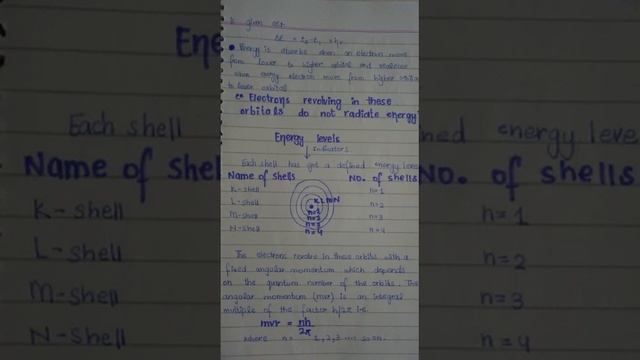 is given as:-
ΔE = E₂-E₁ = hν
Energy is absorbs when an electron moves
from lower to higher orbital and realease
when energy electron move from higher orbital
to lower orbital
Electrons revolving in these
orbitals do not radiate energy
Energy levels
Indicators
Each shell has got a defined energy level
Name of shells No. of shells
K-shell n=1
L-shell n=2
M-shell n=3
N-shell n=4
K L M N
n=2
n=3
n=4
The electrons revolve in these orbits with a
fixed angular momentum which depends
on the quantum number of the orbits. This
angular momentum (mvr) is an integral
multiple of the factor h/2π i.e.
mvr = nh/2π
where n = 1,2,3 .... so on.
Ene
Each shell
Name of Shel
K-shell
L-shell
M-shell
N-shell
ined energy leve
No. of shells
n=1
n=2
n=3
n=4